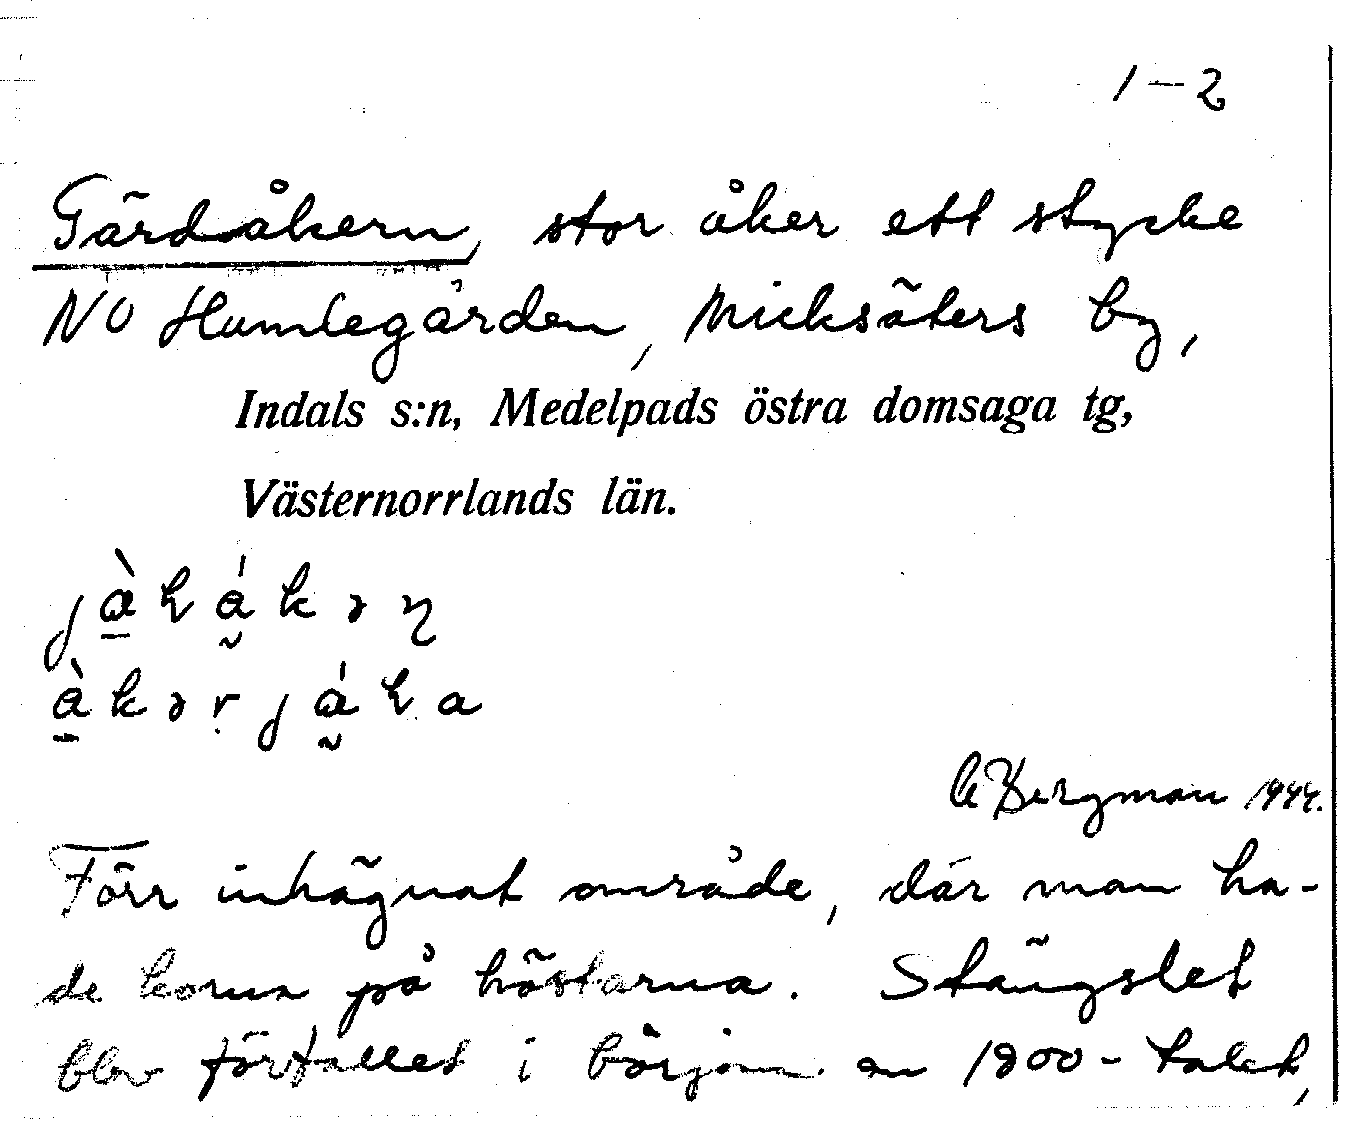 1-2
Gärdåkern, stor åker ett stycke
NO Humlegården, Micksäters by,
Indals s:n, Medelpads östra domsaga tg,
Västernorrlands län.
C Bergman 1944.
Förr inhägnat område, där man ha-
de korna på höstarna. Stängslet
blev förfallet i början en 1900-talet,